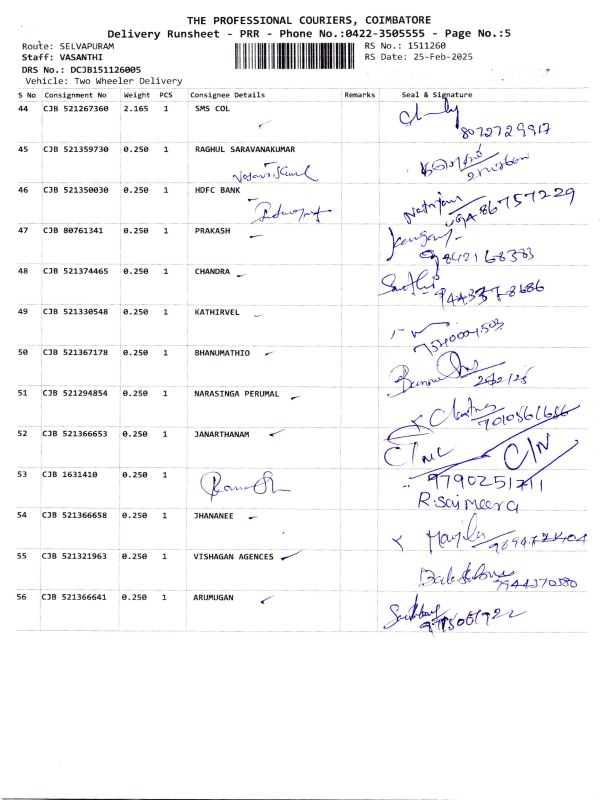 THE PROFESSIONAL COURIERS, COIMBATORE
Delivery Runsheet - PRR - Phone No.:0422-3505555 - Page No.:5
Route: SELVAPURAM RS No.: 1511260
Staff: VASANTHI RS Date: 25-Feb-2025
DRS No.: DCJB151126005
Vehicle: Two Wheeler Delivery
S No Consignment No Weight PCS Consignee Details Remarks Seal & Signature
44 CJB 521267360 2.165 1 SMS COL
8072729917
45 CJB 521359730 0.250 1 RAGHUL SARAVANAKUMAR
46 CJB 521350030 0.250 1 HDFC BANK
Natrajan
47 CJB 80761341 0.250 1 PRAKASH
9842168383
48 CJB 521374465 0.250 1 CHANDRA
49 CJB 521330548 0.250 1 KATHIRVEL
50 CJB 521367178 0.250 1 BHANUMATHIO
51 CJB 521294854 0.250 1 NARASINGA PERUMAL
52 CJB 521366653 0.250 1 JANARTHANAM
C/N
53 CJB 1631410 0.250 1
R.Sai Meera
54 CJB 521366658 0.250 1 JHANANEE
55 CJB 521321963 0.250 1 VISHAGAN AGENCES
56 CJB 521366641 0.250 1 ARUMUGAN